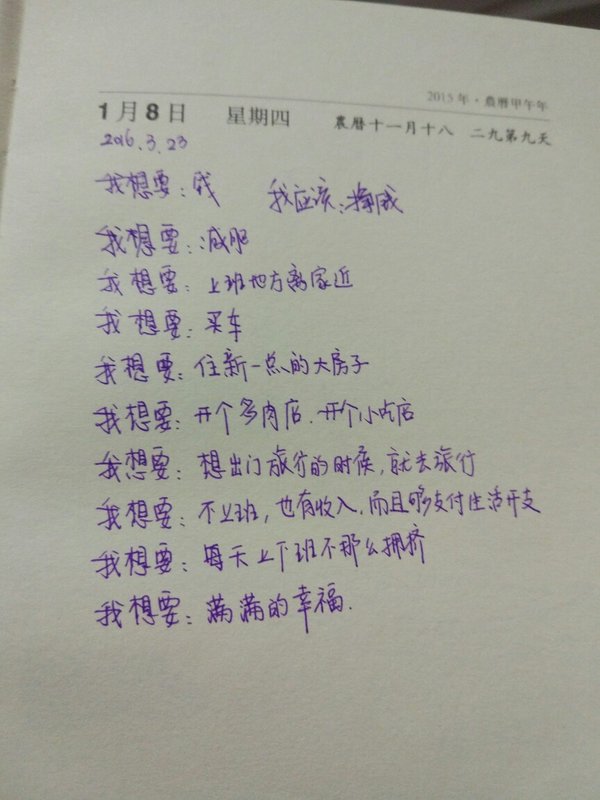 2015年·農曆甲午年
1月8日 星期四 農曆十一月十八 二九第九天
2016.3.23
我想要：钱 我应该：挣钱
我想要：减肥
我想要：上班地方离家近
我想要：买车
我想要：住新一点的大房子
我想要：开个多肉店.开个小吃店
我想要：想出门旅行的时候，就去旅行
我想要：不上班，也有收入.而且够支付生活开支
我想要：每天上下班不那么拥挤
我想要：满满的幸福.